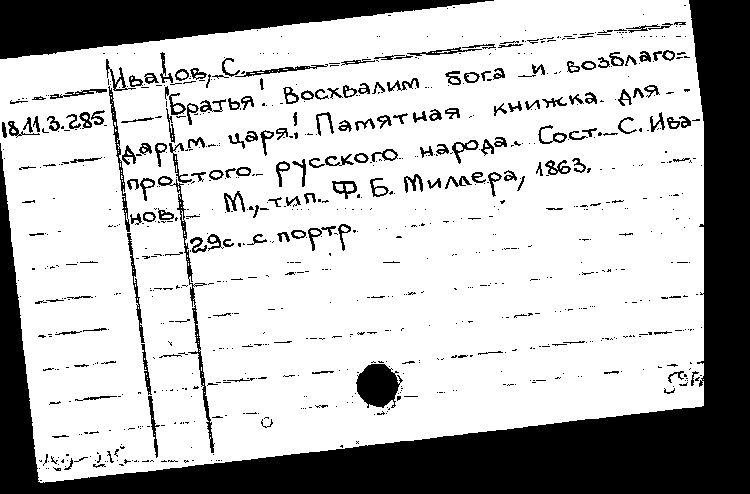 Иванов, С.
18.11.3.285
Братья! Восхвалим бога и возблаго=
дарим царя! Памятная книжка для
простого русского народа. Сост. С. Ива-
нов. М., тип. Ф. Б. Миллера, 1863.
29с. с портр.